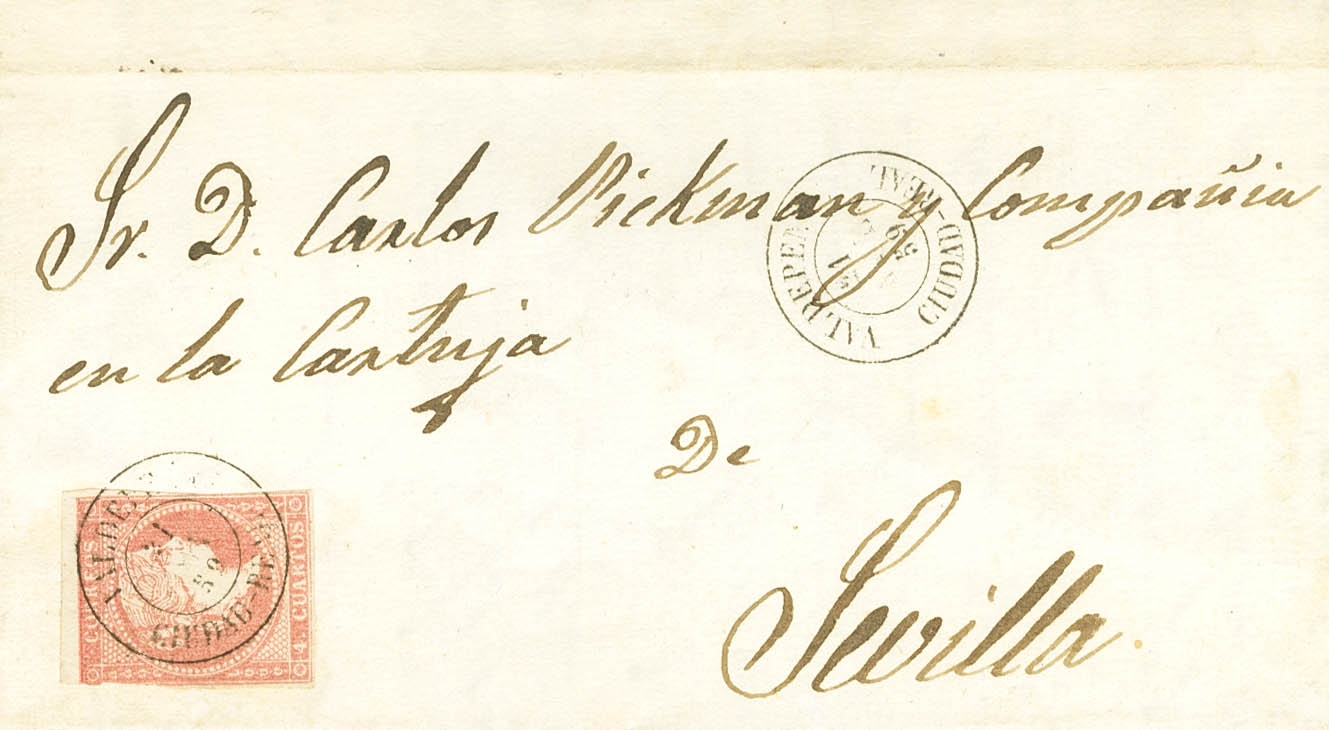 Sr. D. Carlos Pickman y Compañia
en la Cartuja
De
Sevilla.
VALDEPEÑ CIUDAD-REAL
21
59
VALDEPEÑ CIUDAD-REAL
21
59
CUARTOS
4 CUARTOS